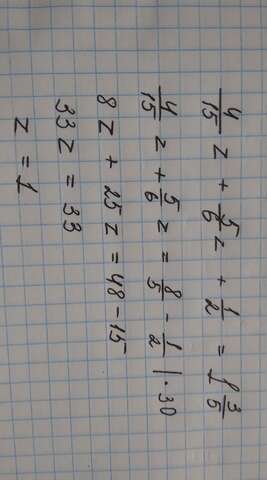 4/15 z + 5/6 z + 1/2 = 1 3/5
4/15 z + 5/6 z = 8/5 - 1/2 | · 30
8z + 25z = 48 - 15
33z = 33
z = 1